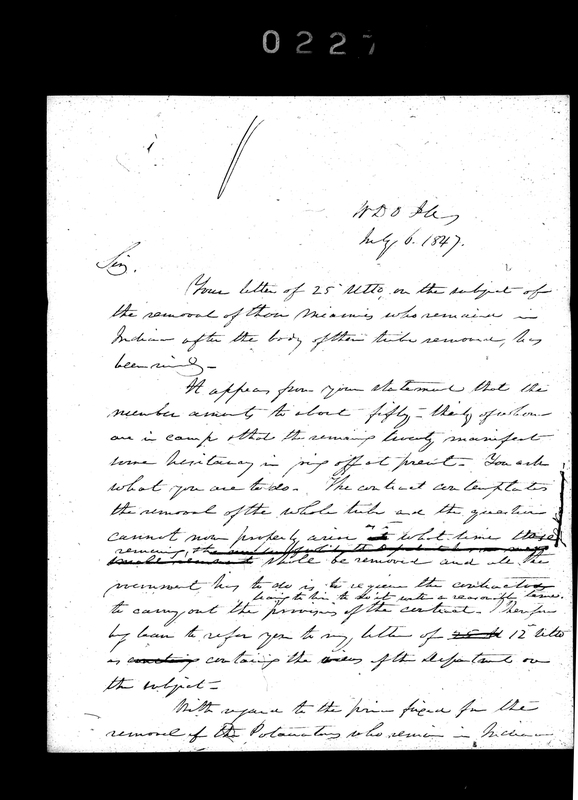 0227
W D O I A
July 6. 1847.
Sir,
Your letter of 25 Ulto, on the subject of
the removal of those Miamies who remained in
Indiana after the body of their tribe removed, has
been recd -
It appears from your statement that the
number amounts to about fifty - thirty of whom
are in camp & that the remaing twenty manifest
some hesitancy in going off at present - You ask
what you are to do. The contract contemplates
the removal of the whole tribe and the question
cannot now properly arise at what time those
remaining, the
shall be removed and all the
has to do is to require the contractors
to him to do it with a reasonable time
to carry out the provisions of the contract. I therefore
beg leave to refer you to my letter of 12 Ulto
as containing the views of the Department on
the subject -
With regard to the price fixed for the
removal of the Potawatomies who remain in Indiana